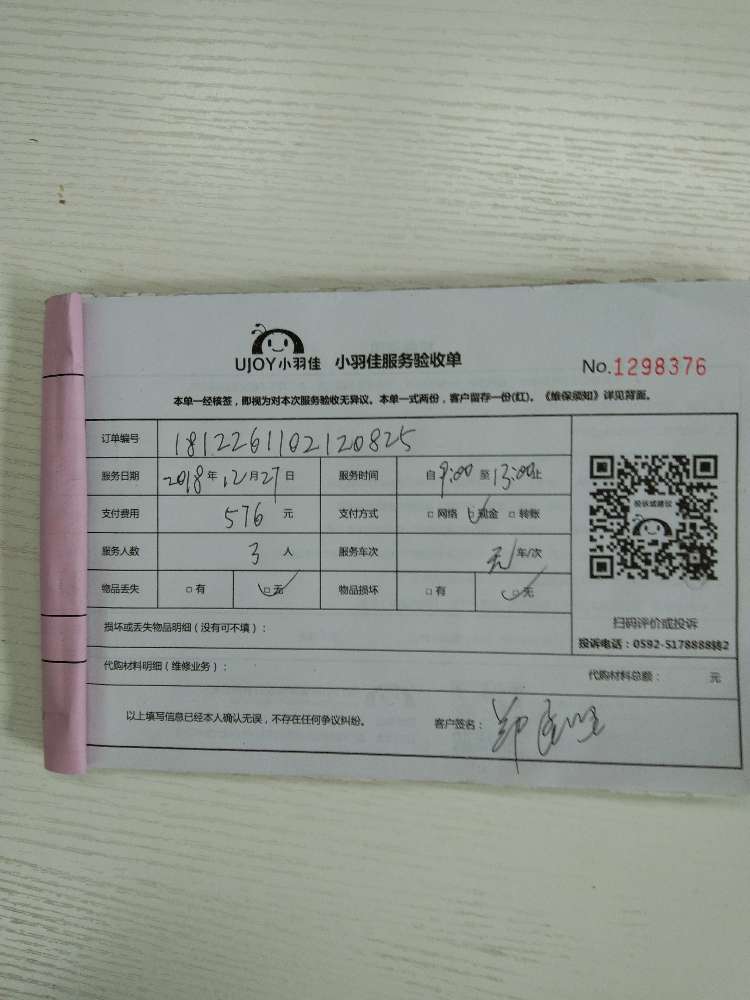 UJOY小羽佳 小羽佳服务验收单 No.1298376
本单一经核签，即视为对本次服务验收无异议。本单一式两份，客户留存一份(红)。《维保须知》详见背面。
订单编号 1812261102120825
服务日期 2018年12月27日 服务时间 自9:00至13:00止
支付费用 576元 支付方式 □网络 □现金 □转账
服务人数 3人 服务车次 无车/次
物品丢失 □有 □无 物品损坏 □有 □无
投诉或建议
扫码评价或投诉
投诉电话：0592-5178888转2
损坏或丢失物品明细（没有可不填）：
代购材料明细（维修业务）： 代购材料总额： 元
以上填写信息已经本人确认无误，不存在任何争议纠纷。 客户签名：郑